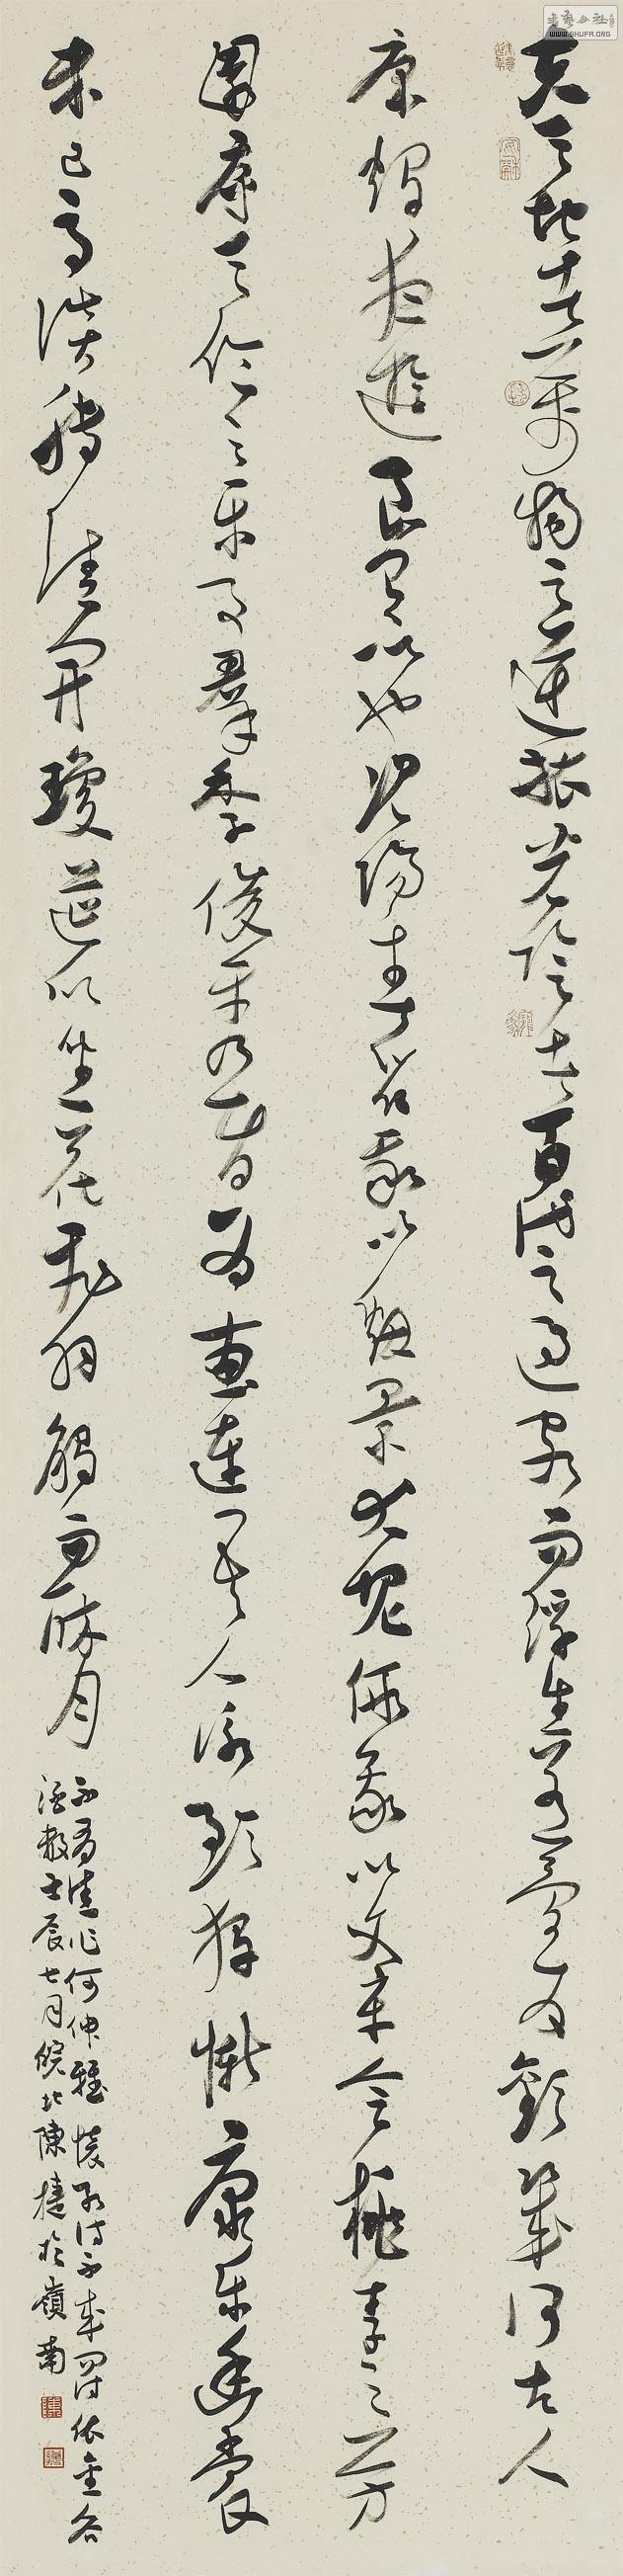 夫天地者萬物之逆旅光陰者百代之過客而浮生若夢為歡幾何古人
秉燭夜遊良有以也況陽春召我以煙景大塊假我以文章會桃李之芳
園序天倫之樂事羣季俊秀皆為惠連吾人詠歌獨慚康樂幽賞
未已高談轉清開瓊筵以坐花飛羽觴而醉月
不有佳作何伸雅懷如詩不成罰依金谷
酒數壬辰七月皖北陳捷於嶺南
WWW.SHUFA.ORG